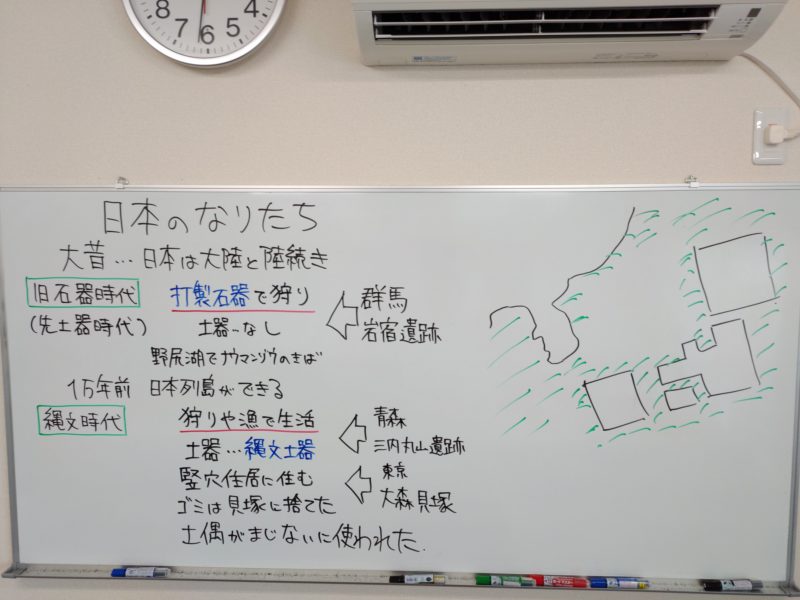 8
7
6
5
4
3
日本のなりたち
大昔…日本は大陸と陸続き
旧石器時代 打製石器で狩り
(先土器時代) 土器…なし
群馬
岩宿遺跡
野尻湖でナウマンゾウのきば
1万年前 日本列島ができる
縄文時代 狩りや漁で生活
土器…縄文土器
青森
三内丸山遺跡
竪穴住居に住む
ゴミは貝塚に捨てた
東京
大森貝塚
土偶がまじないに使われた.